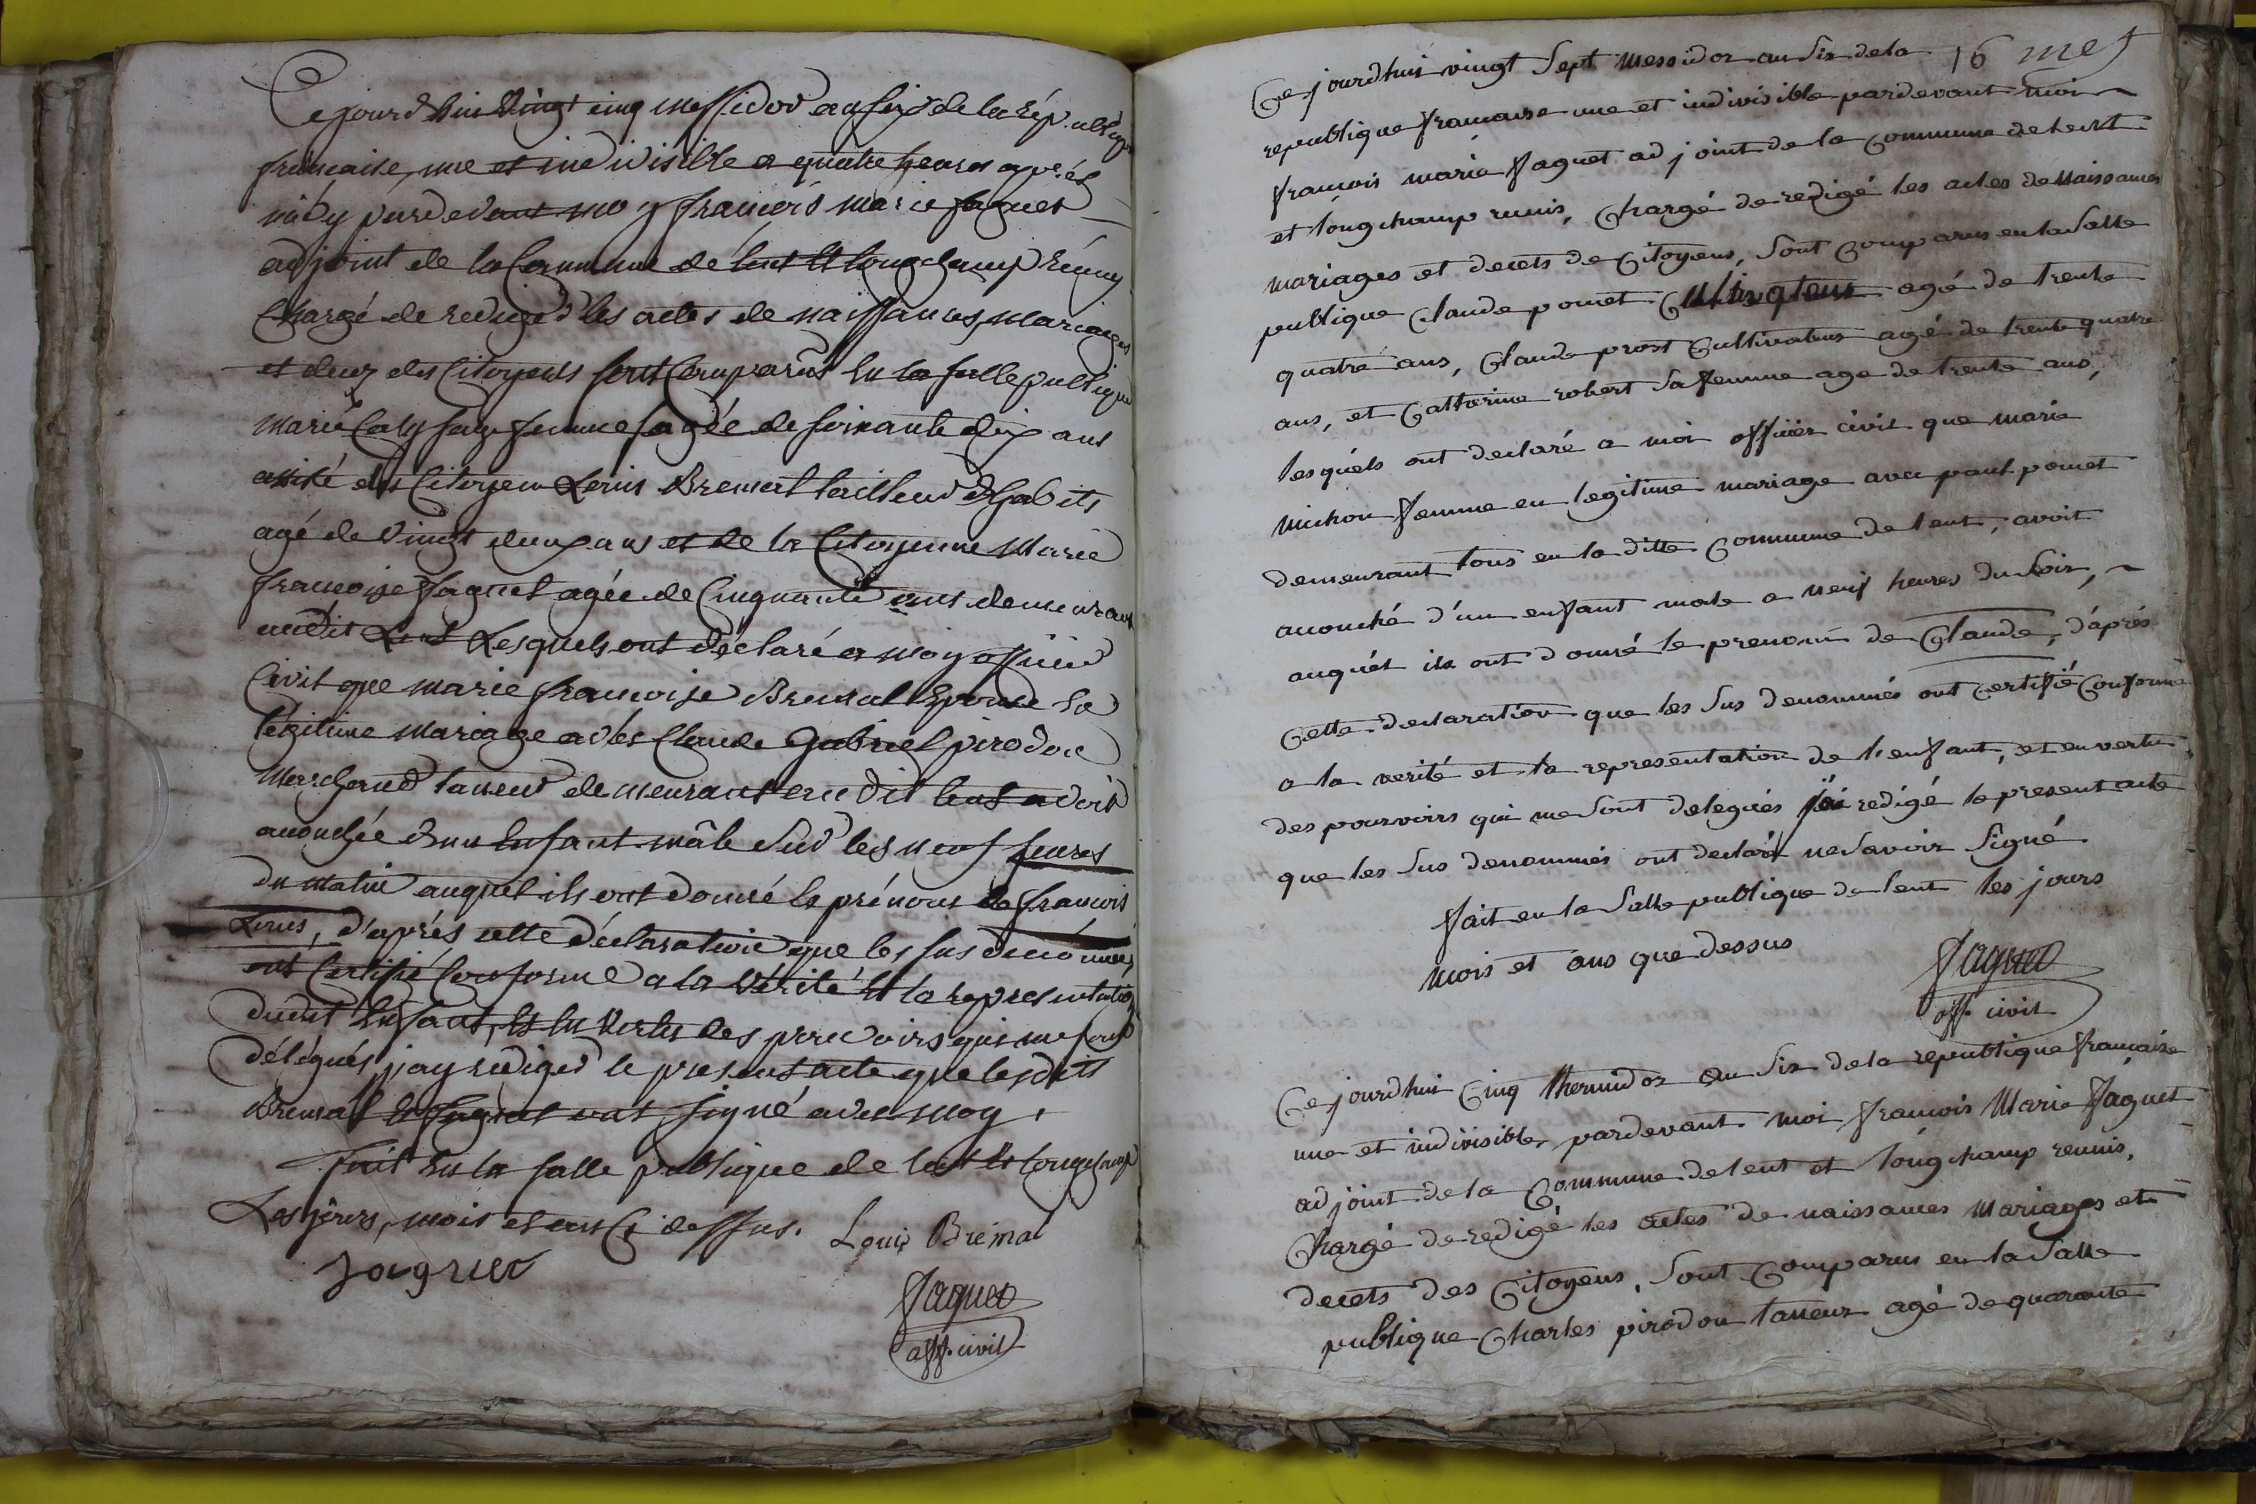 Cejourdhui Vingt cinq messidor an six de la république
francaise, une et indivisible a quatre heures aprés
midy pardevant moy françois marie jaguet
adjoint de la Commune de lent et longchamp réuny
Chargé de rediger les actes de naissances, mariages
et decez des Citoyens sont Comparus En la salle publique
marie Caly sage femme agée de soixante dix ans
assisté du Citoyen Louis Bremal tailleur d'habits
agé de vingt deux ans et de la Citoyenne Marie
francoise jaguet agée de Cinquante ans demeurant
audit Lent Lesquels ont déclaré a moy officier
Civil que marie francoise Bremal Epouse En
légitime mariage avec Claude Gabriel pirodon
Marchand taneur demeurant audit lent avoit
accouchée d'un Enfant mâle sur les neuf heures
du matin auquel ils ont donné le prénom de francois
Louis, d'aprés cette déclaration que les sus denommés
ont Certifié Conforme a la Vérité Et la representation
dudit Enfant, Et En Vertu des pouvoirs qui me sont
délégués j'ay rediger le present acte que lesdits
Bremal Et jaguet ont signé avec moy,
fait En la salle publique de lent Et longchamp
Les jours, mois et ans Ci dessus. Louis Bremal
jaguet
Jaguet
off. civil
16 mes
Cejourdhui vingt Sept messidor an Six de la
republique francaise une et indivisible pardevant moi
francois marie Jaguet adjoint de la Commune de lent
et longchamp reunis, Chargé de redigé les actes de Naissances
mariages et decets de Citoyens, Sont Comparus en la Salle
publique Claude pomet Cultivateur agé de trente
quatre ans, Claude prost Cultivateur agé de trente quatre
ans, et Catherine robert Sa femme age de trente ans,
lesquels ont declaré a moi officier civil que marie
michon femme en legitime mariage avec paul pomet
demeurant tous en la ditte Commune de lent, avoit
accouché d'un enfant male a neuf heures du Soir,
auquel ils ont donné le prenom de Claude, d'aprés
Cette declaration que les Sus denommés ont Certifié Conforme
a la verité et la representation de l'enfant, et en vertu
des pourvoirs qui me Sont delegués j'ai redigé le present acte
que les Sus denommés ont declaré ne Savoir Signé
fait en la Salle publique de lent les jours
mois et ans que dessus
Jaguet
off. civil
Cejourdhui Cinq thermidor an Six de la republique francaise
une et indivisible, pardevant moi francois Marie Jaguet
adjoint de la Commune de lent et longchamp reunis,
Chargé de redigé les actes de naissances mariages et
decets des Citoyens, Sont Comparus en la Salle
publique Charles pirodon taneur agé de quarante